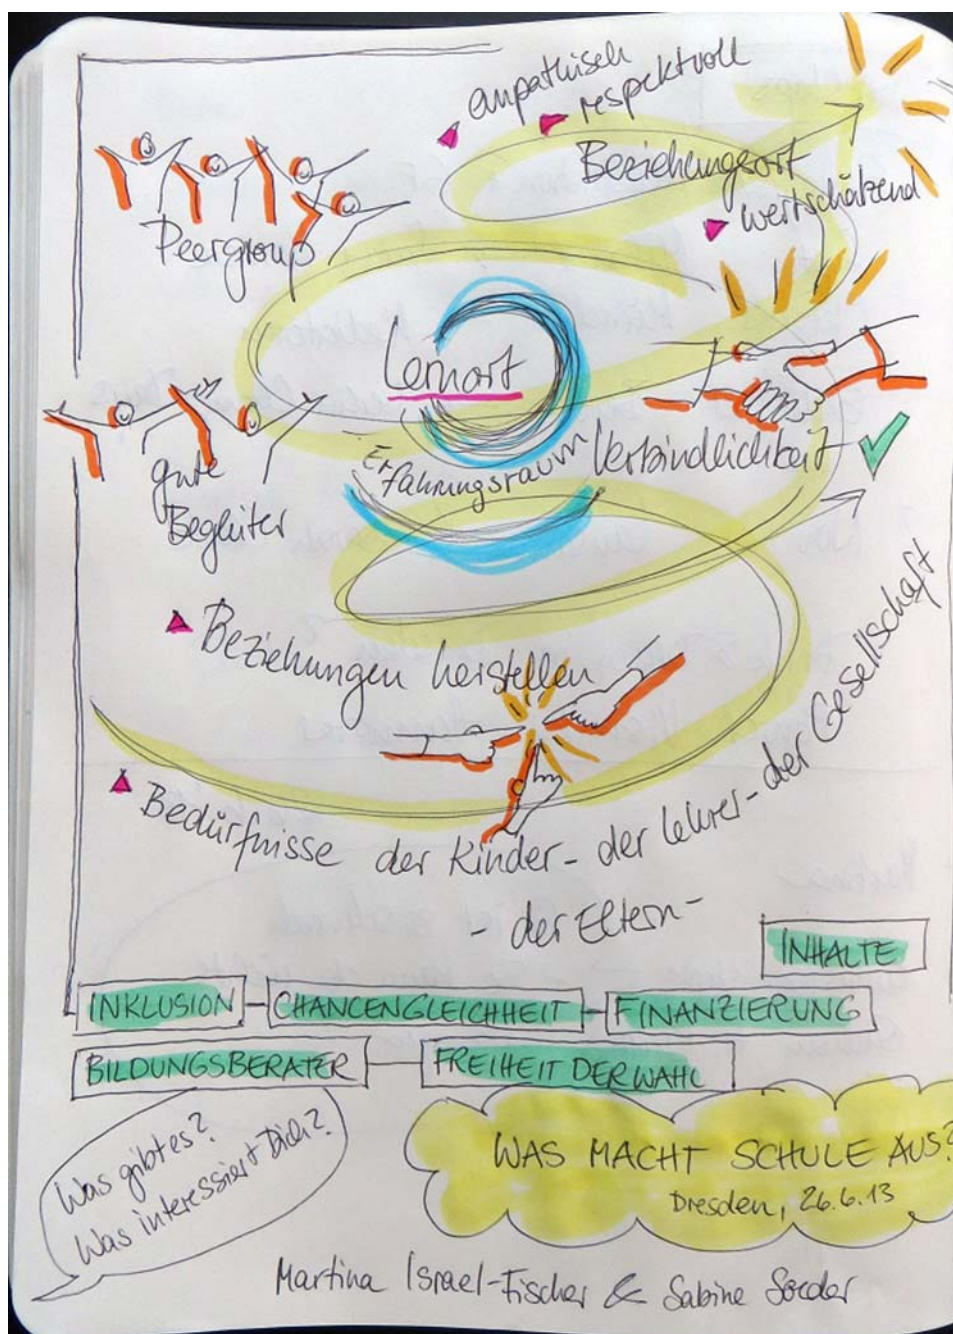 empathisch
respektvoll
Beziehungsort
wertschätzend
Peergroup
Lernort
Erfahrungsraum
Verbindlichkeit
gute
Begleiter
Beziehungen herstellen
Bedürfnisse der Kinder - der Lehrer - der Gesellschaft
- der Eltern -
INHALTE
INKLUSION - CHANCENGLEICHHEIT - FINANZIERUNG
BILDUNGSBERATER - FREIHEIT DER WAHL
Was gibt es?
Was interessiert Dich?
WAS MACHT SCHULE AUS?
Dresden, 26.6.13
Martina Israel-Fischer & Sabine